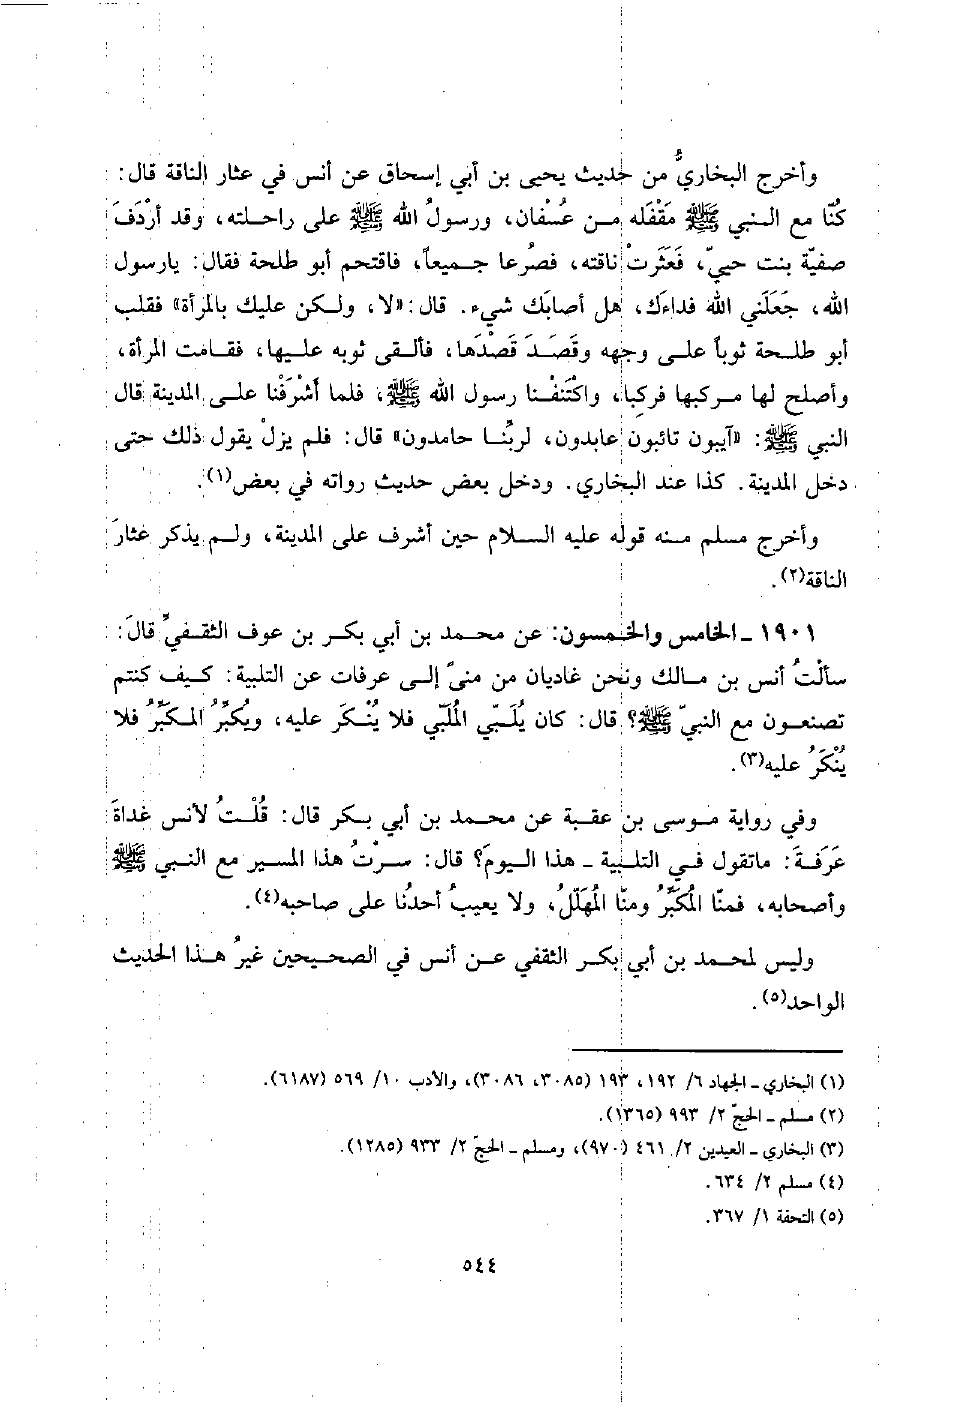 وأخرج البخاريُّ من حديث يحيى بن أبي إسحاق عن أنس في عثار الناقة قال:
كنّا مع النبي ﷺ مَقْفَله من عُسْفان، ورسولُ الله ﷺ على راحلته، وقد أرْدَفَ
صفيّة بنت حييّ، فَعَثَرتْ ناقته، فصُرعا جميعاً، فاقتحم أبو طلحة فقال: يارسول
الله، جَعَلَني الله فداءَك، هل أصابَك شيء. قال: «لا، ولكن عليك بالمرأة» فقلب
أبو طلحة ثوباً على وجهه وقَصَدَ قصْدَها، فألقى ثوبه عليها، فقامت المرأة،
وأصلح لها مركبها فركِبا، واكْتَنفْنا رسول الله ﷺ، فلما أشْرَفْنا على المدينة قال
النبي ﷺ: «آيبون تائبون عابدون، لربِّنا حامدون» قال: فلم يزلْ يقول ذلك حتى
دخل المدينة. كذا عند البخاري. ودخل بعض حديث رواته في بعض(١).
وأخرج مسلم منه قوله عليه السلام حين أشرف على المدينة، ولم يذكر عثارَ
الناقة(٢).
١٩٠١ ـ الخامس والخمسون: عن محمد بن أبي بكر بن عوف الثقفيِّ قالَ:
سألْتُ أنس بن مالك ونحن غاديان من منىً إلى عرفات عن التلبية: كيف كنتم
تصنعون مع النبيّ ﷺ؟ قال: كان يُلَبّي المُلَبّي فلا يُنْكَر عليه، ويُكبِّرُ المكبِّرُ فلا
يُنْكَرُ عليه(٣).
وفي رواية موسى بن عقبة عن محمد بن أبي بكر قال: قُلْتُ لأنس غداةَ
عَرَفَةَ: ماتقول في التلبية ـ هذا اليومَ؟ قال: سرْتُ هذا المسير مع النبي ﷺ
وأصحابه، فمنّا المُكَبِّرُ ومنّا المُهَلّلُ، ولا يعيبُ أحدُنا على صاحبه(٤).
وليس لمحمد بن أبي بكر الثقفي عن أنس في الصحيحين غيرُ هذا الحديث
الواحد(٥).
(١) البخاري ـ الجهاد ٦/ ١٩٢، ١٩٣ (٣٠٨٥، ٣٠٨٦)، والأدب ١٠/ ٥٦٩ (٦١٨٧).
(٢) مسلم ـ الحجّ ٢/ ٩٩٣ (١٣٦٥).
(٣) البخاري ـ العيدين ٢/ ٤٦١ (٩٧٠)، ومسلم ـ الحجّ ٢/ ٩٣٣ (١٢٨٥).
(٤) مسلم ٢/ ٦٣٤.
(٥) التحفة ١/ ٣٦٧.
٥٤٤